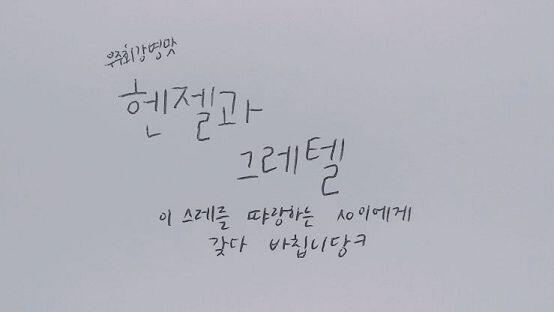 우주최강병맛
헨젤과
그레텔
이 스레를 따랑하는 시이에게
갖다 바칩니당ㅋ